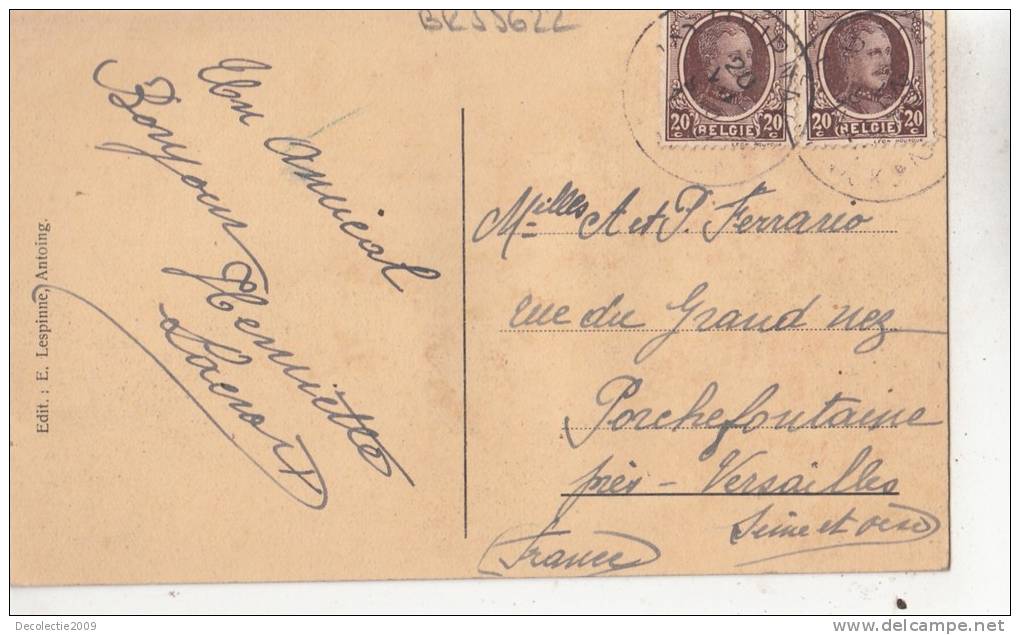 BR55622
Un amical
Bonjour
Henriette
Edit.: E. Lespinne, Antoing.
20c BELGIE 20c
20c BELGIE 20c
Milles A et P. Ferrario
rue du Grand nez
Porchefontaine
près - Versailles
Seine et Oise
(France)
Decolectie2009
www.delcampe.net